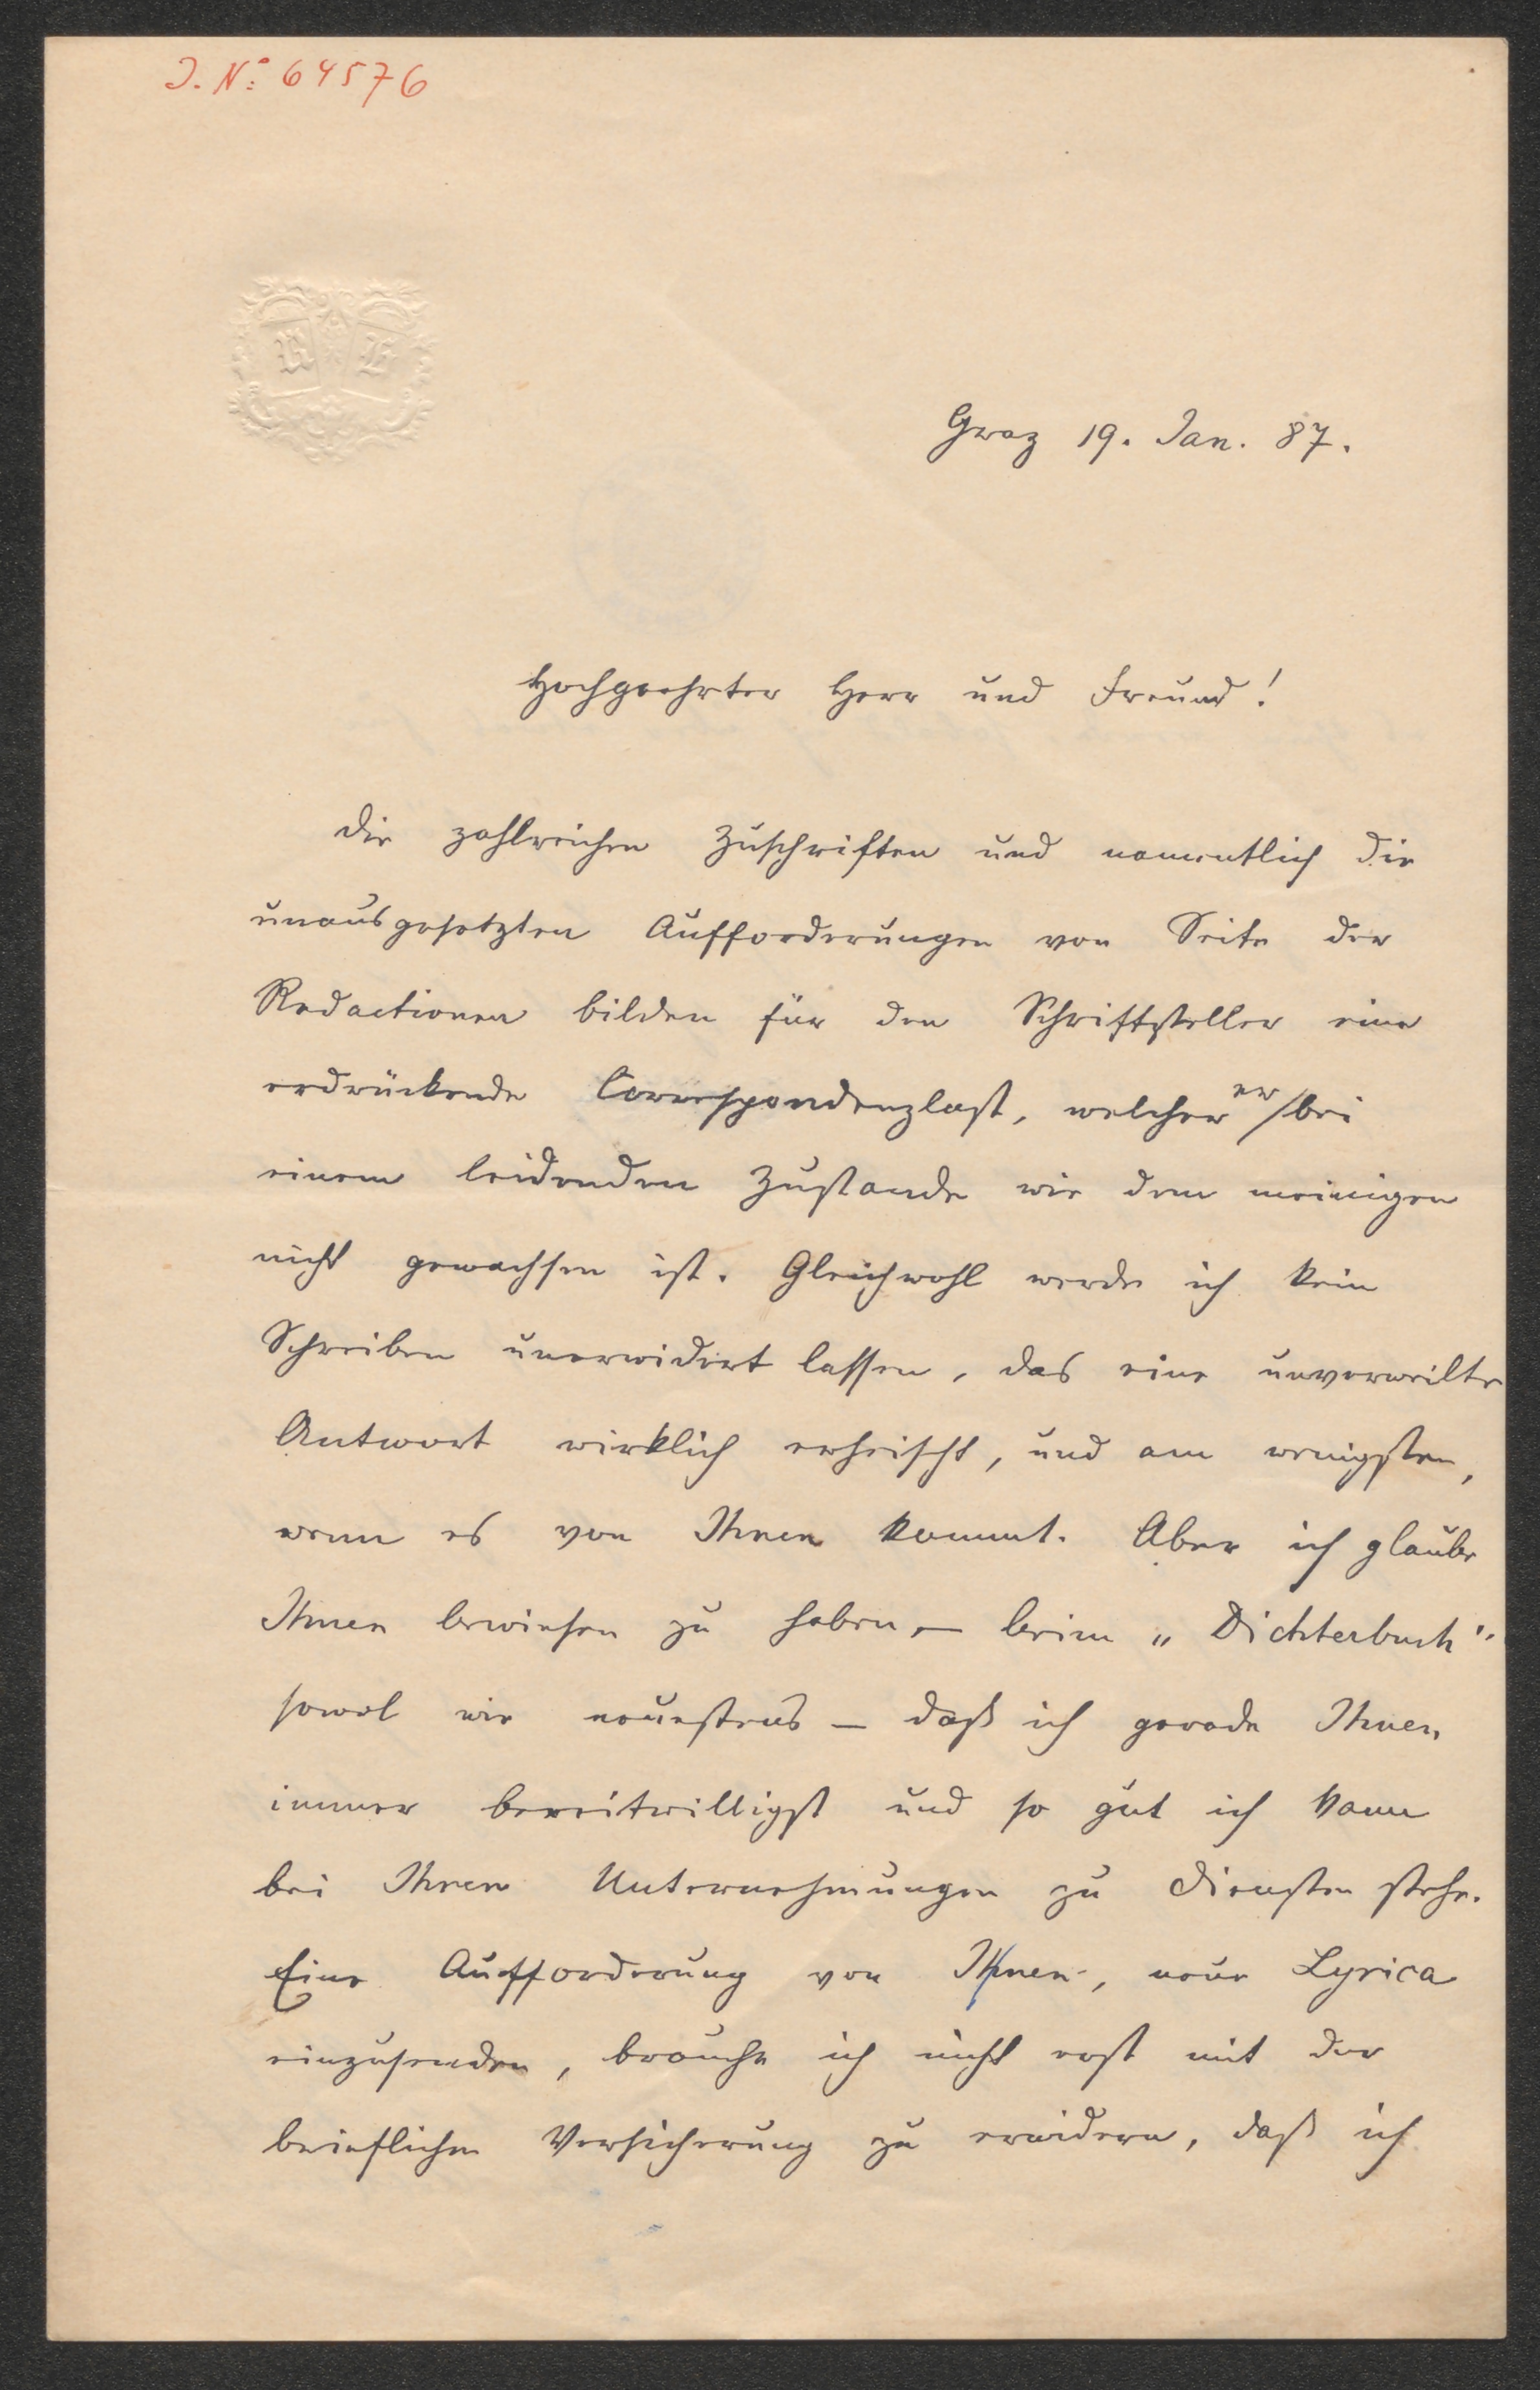 J. No: 64576
R H
Graz 19. Jan. 87.
Hochgeehrter Herr und Freund!
Die zahlreichen Zuschriften und namentlich die
unausgesetzten Aufforderungen von Seite der
Redactionen bilden für den Schriftsteller eine
erdrückende Correspondenzlast, welcher er bei
einem leidenden Zustande wie dem meinigen
nicht gewachsen ist. Gleichwohl werde ich kein
Schreiben unerwidert lassen, das eine unverweilte
Antwort wirklich erheischt, und am wenigsten,
wenn es von Ihnen kommt. Aber ich glaube
Ihnen bewiesen zu haben, – beim „Dichterbuch“
sowol wie neuestens – daß ich gerade Ihnen
immer bereitwilligst und so gut ich kann
bei Ihren Unternehmungen zu Diensten stehe.
Eine Aufforderung von Ihnen, neue Lyrica
einzusenden, brauche ich nicht erst mit der
brieflichen Versicherung zu erwidern, daß ich